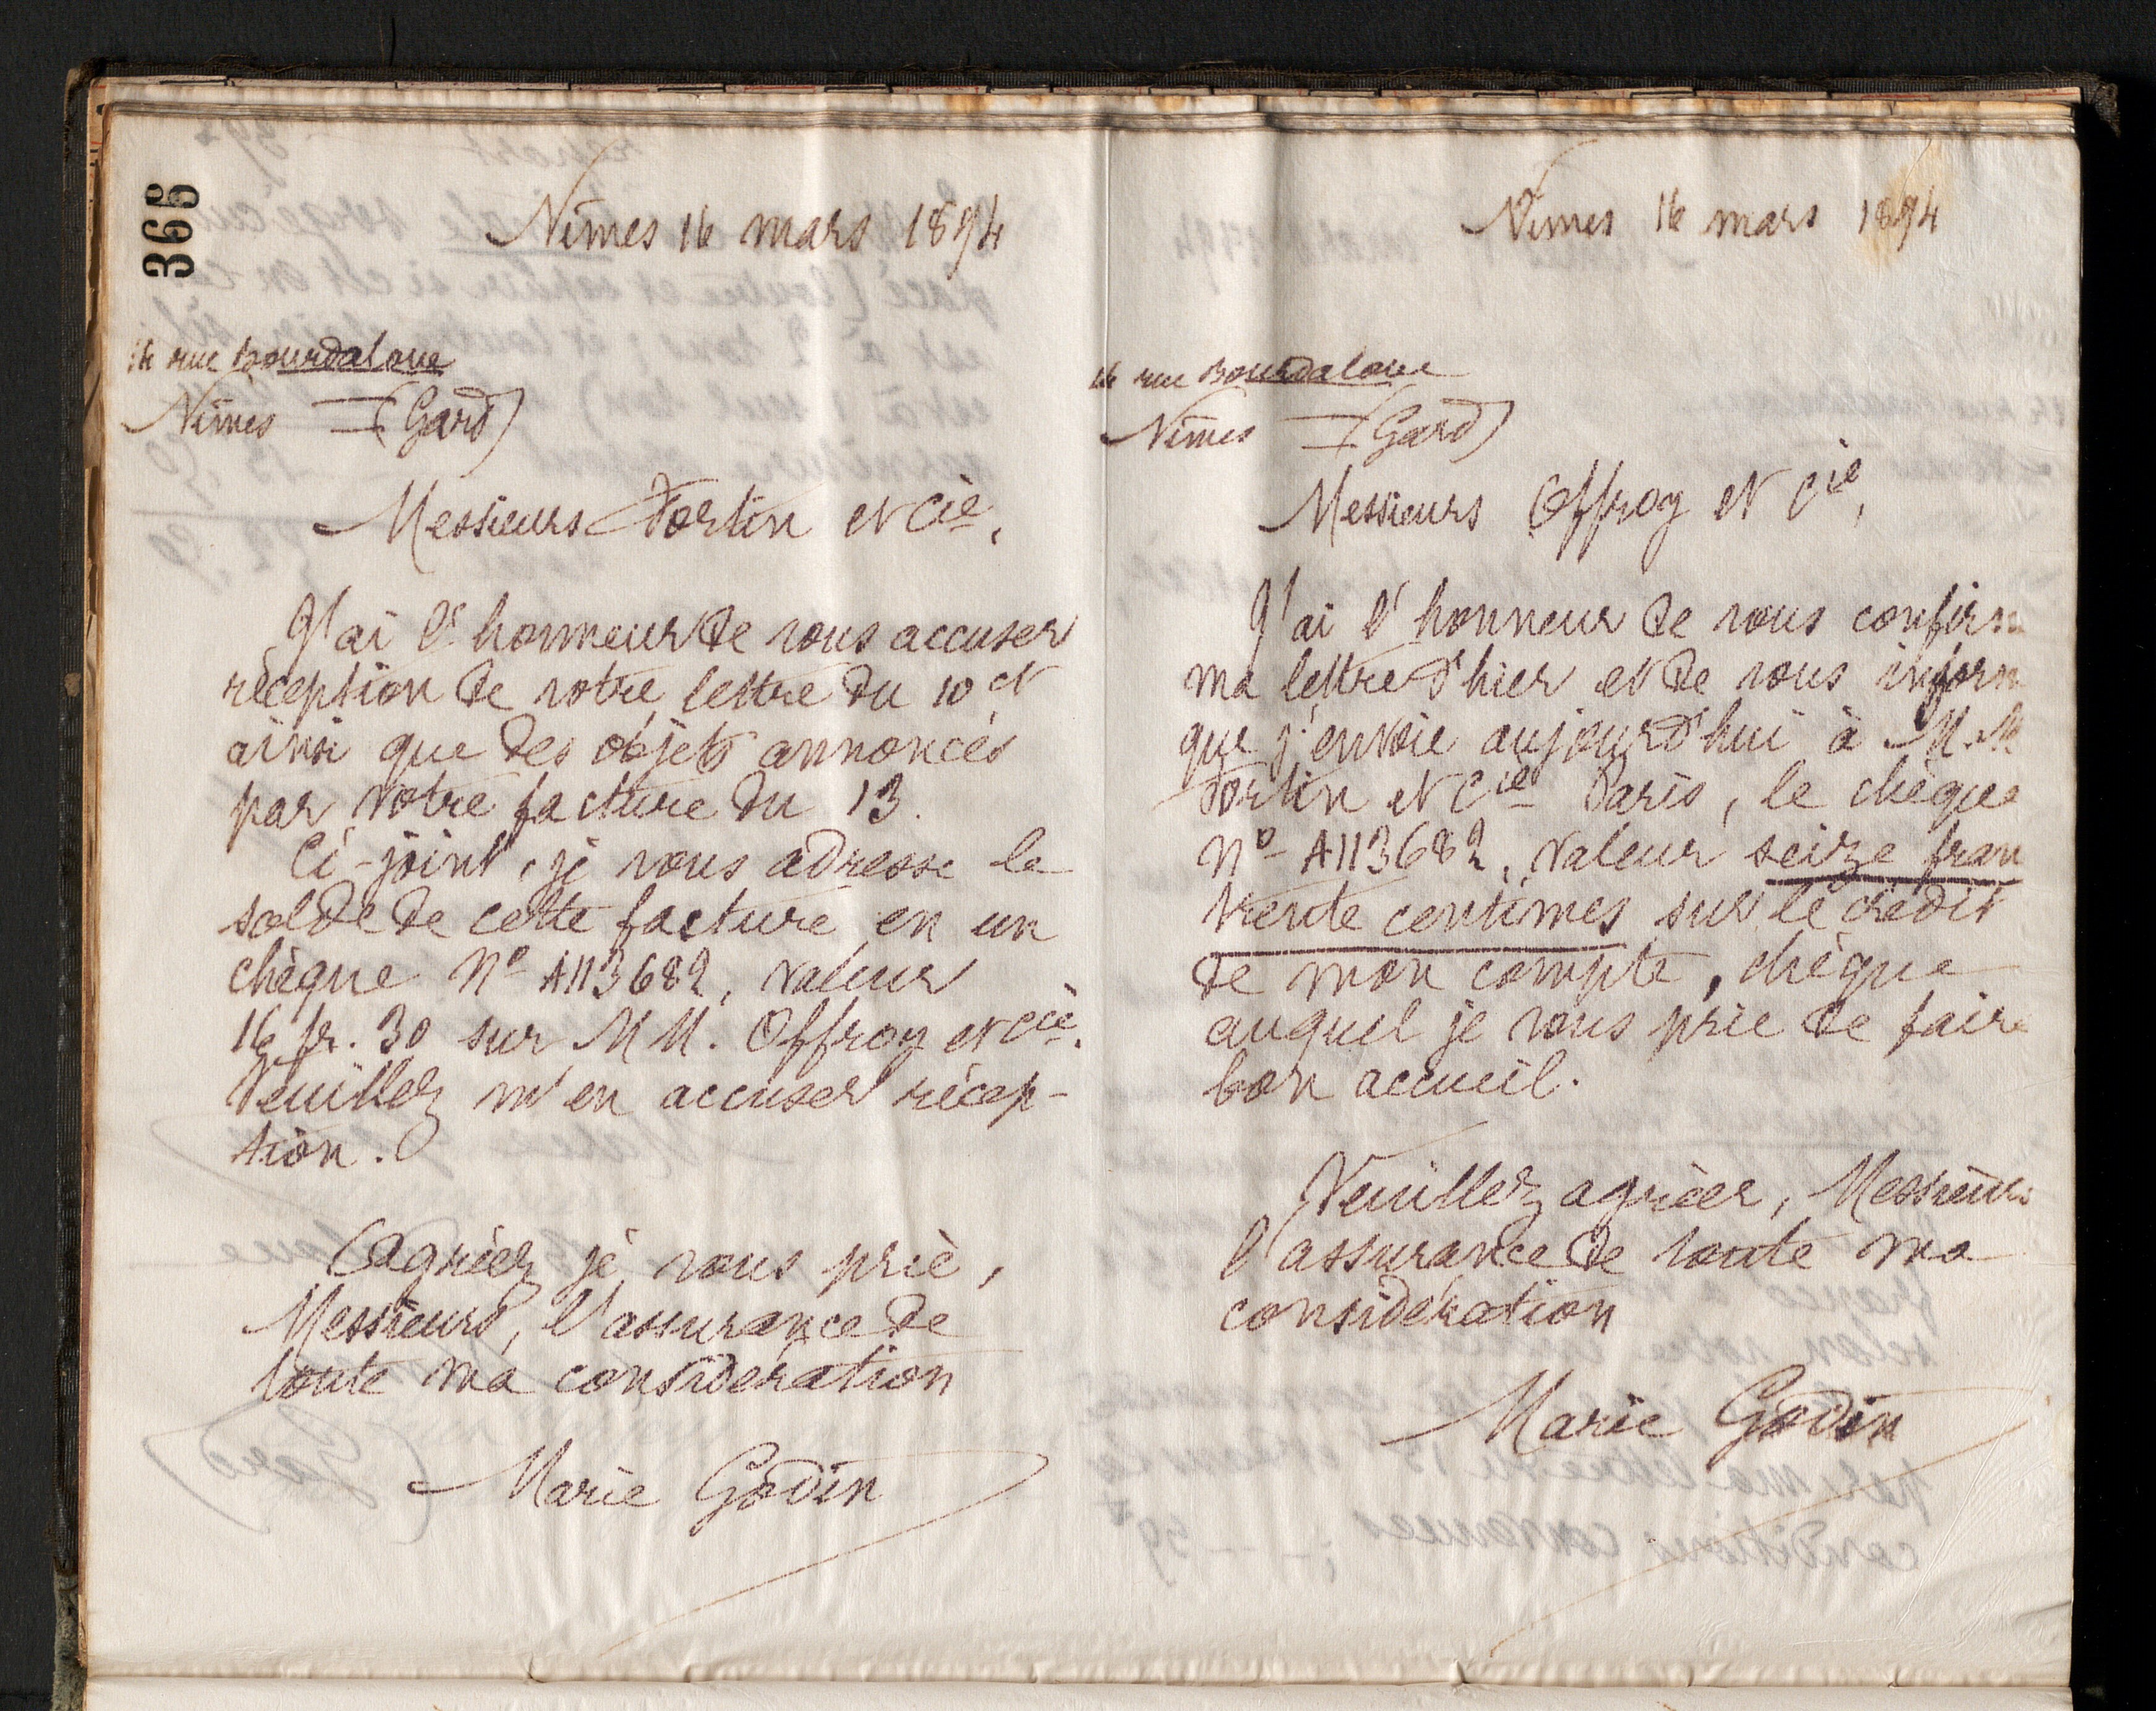 366
Nîmes 16 mars 1894
14 rue Bourdaloue
Nîmes (Gard)
Messieurs Fortin et Cie,
J'ai l'honneur de vous accuser
réception de votre lettre du 10 ct
ainsi que des objets annoncés
par votre facture du 13.
Ci-joint, je vous adresse le
solde de cette facture en un
chèque No A113682, valeur
16 fr. 30 sur MM. Offroy et Cie.
Veuillez m'en accuser récep-
tion.
Agréez je vous prie,
Messieurs, l'assurance de
toute ma considération
Marie Godin
Nîmes 16 mars 1894
14 rue Bourdaloue
Nîmes (Gard)
Messieurs Offroy et Cie,
J'ai l'honneur de vous confirm
ma lettre d'hier et de vous inform
que j'envoie aujourd'hui à M.M
Fortin et Cie Paris, le chèque
No A113682, valeur seize fran
trente centimes sur le crédit
de mon compte, chèque
auquel je vous prie de faire
bon accueil.
Veuillez agréer, Messieurs
l'assurance de toute ma
considération
Marie Godin